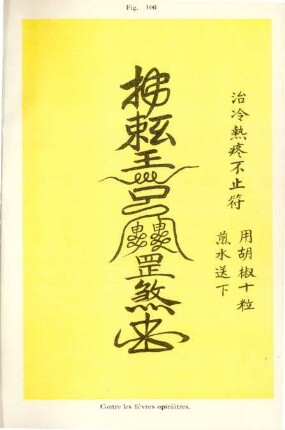 Fig. 100
治冷熱疼不止符
用胡椒十粒
煎水送下
罡煞
Contre les fièvres opiniâtres.